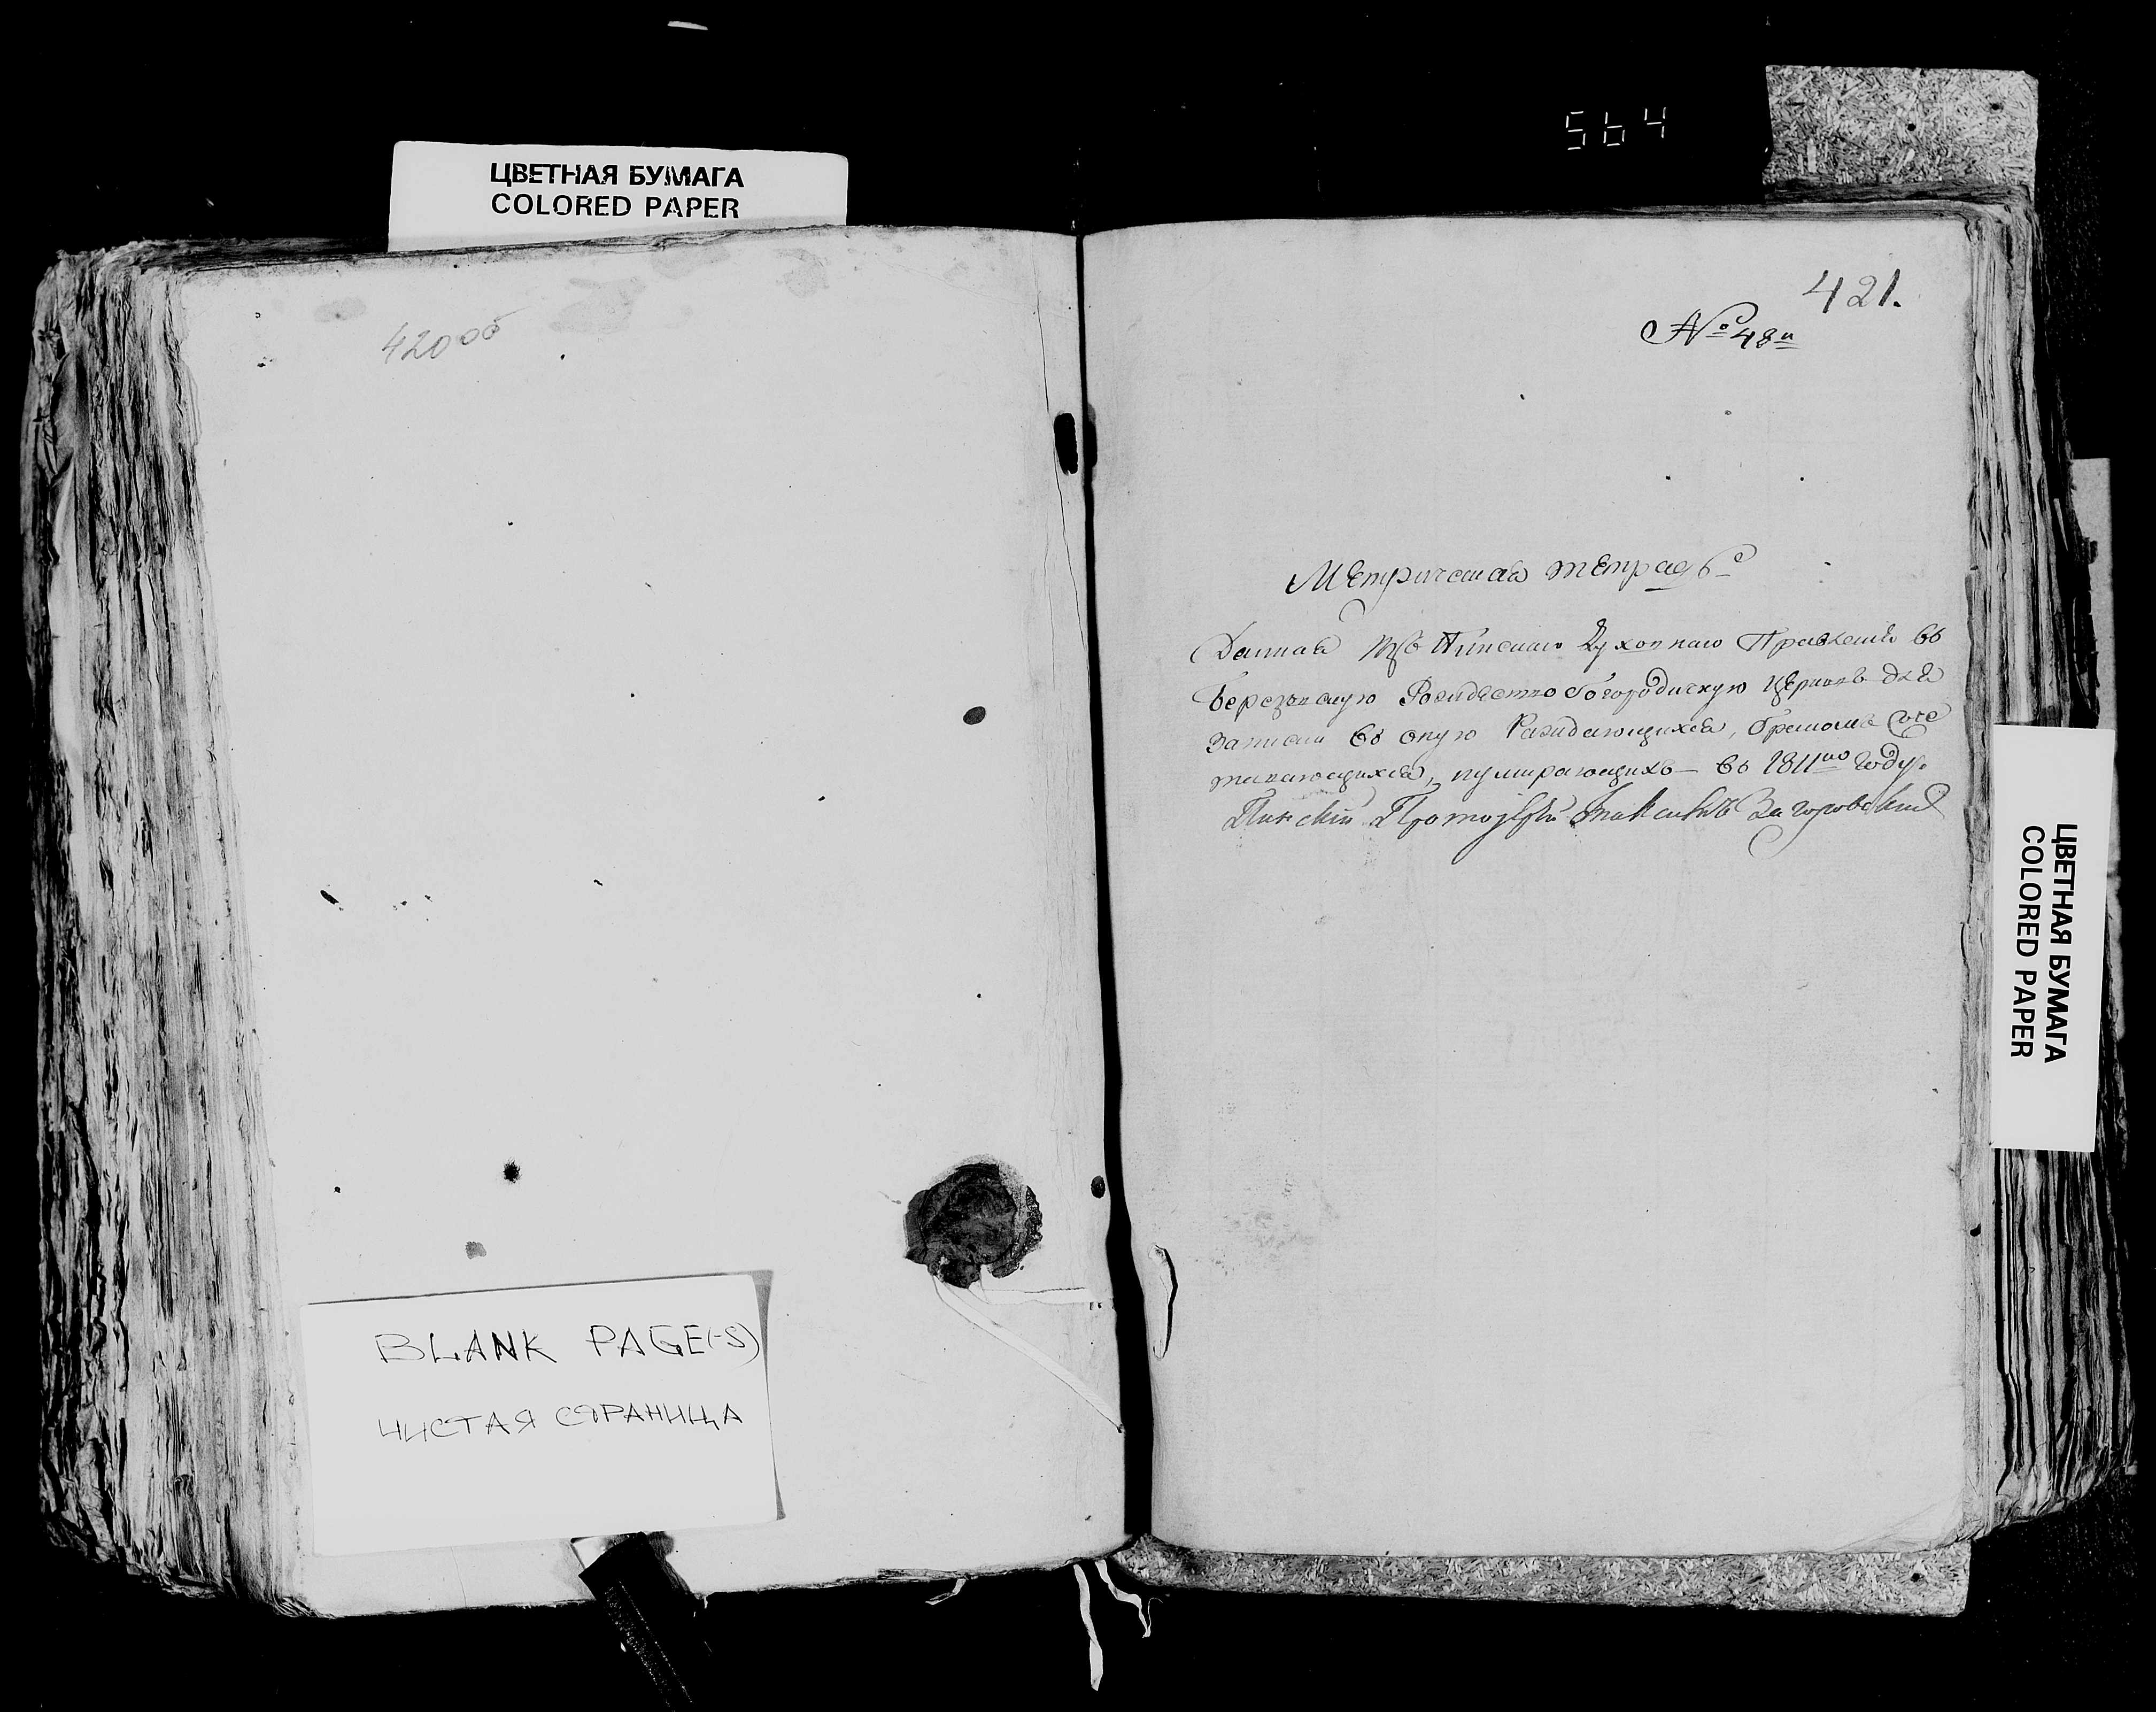 564
ЦВЕТНАЯ БУМАГА
COLORED PAPER
420об
421.
№ 48й
Метрическая тетрадь
Данная изъ Пинскаго Духовнаго Правленія въ
Березскую Рождество Богородичную Церковь для
записки въ оную Раждающихся, бракомъ соче
тавающихся, и умирающихъ — въ 1811мъ году.
Пинскій Протоіерей Максимъ Загоровскій
BLANK PAGE(-S)
ЧИСТАЯ СТРАНИЦА
ЦВЕТНАЯ БУМАГА
COLORED PAPER